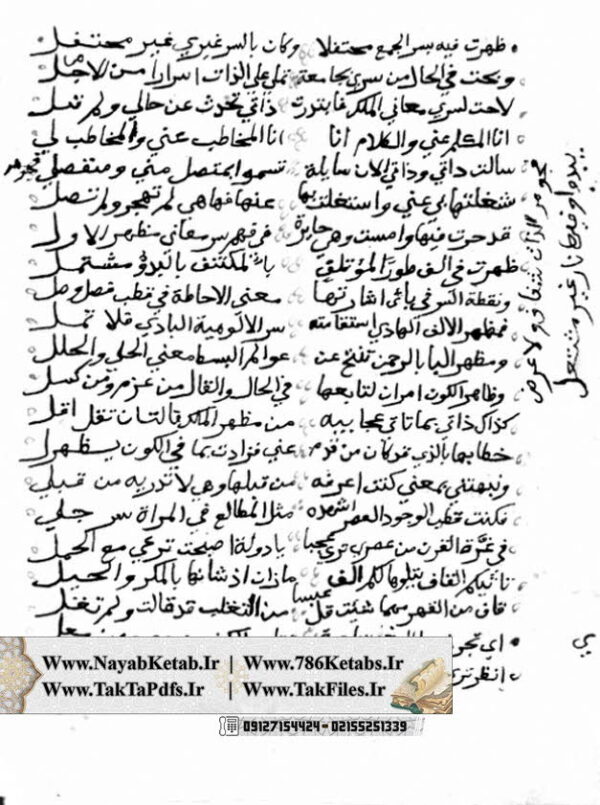 ظهرت فيه بسر الجمع محتفلا وكان بالسر غيري غير محتفل
وبحت في الحال من سري بجامعة تملي على الذات اسرارا من الاجل
لاحت لسري معاني الملك فابتدرت ذاتي تحدث عن حالي ولم تبل
انا المكلم عني والكلام انا انا المخاطب عني والمخاطب لي
سالت ذاتي وذاتي الان سايلة تسموا بمتصل مني ومنفصلي
شغلتها بي عني واستغلت بها عنها فها هي لم تهجر ولم تصل
قد حرت فيها وامست وهي حايرة في فهم سر معاني مظهر الاول
ظهرت في الف طورا لمؤتلق باء لمكتنف بالبدؤ مشتمل
ونقطة السر في بائي اشارتها معنى الاحاطة في قطب فصل وصل
فمظهر الالف الهادي استقامته سر الالوهية البادي فلا تمل
ومظهر البا بالرحمن تفتح عن عوالم البسط معنى الحلي والحلل
وظاهر الكون امران لتابعها في الحال والقال من عزم ومن كسل
كذاك ذاتي بما تاتي عجايبه من مظهر الملك قالت ان تقل اقل
خطابها بالذي قد كان من قدم عني فزادت بما في الكون يظهر لي
ونبهتني بمعنى كنت اعرفه من قبلها وهي لا تدريه من قبلي
فكنت قطب الوجود العصر اشهده مثل المطالع في المراة سر جلي
في غرة القرن من عصري ترى عجبا يا دولة اصبحت ترعى مع الحمل
تاتيكم القاف يتلوها لكم الف ماذات اذ شانها بالمكر والحيل
قاف من القهر مهما شيت قل عبسا من التغلب قد قالت ولم تقل
اي
انظر ترى
جوهر الذات شفاق ولا عرض
يبدوا وفيه نار غير مشتعل
ي
www.NayabKetab.Ir | www.786Ketabs.Ir
www.TakTaPdfs.Ir | www.TakFiles.Ir
09127154424 - 02155251339